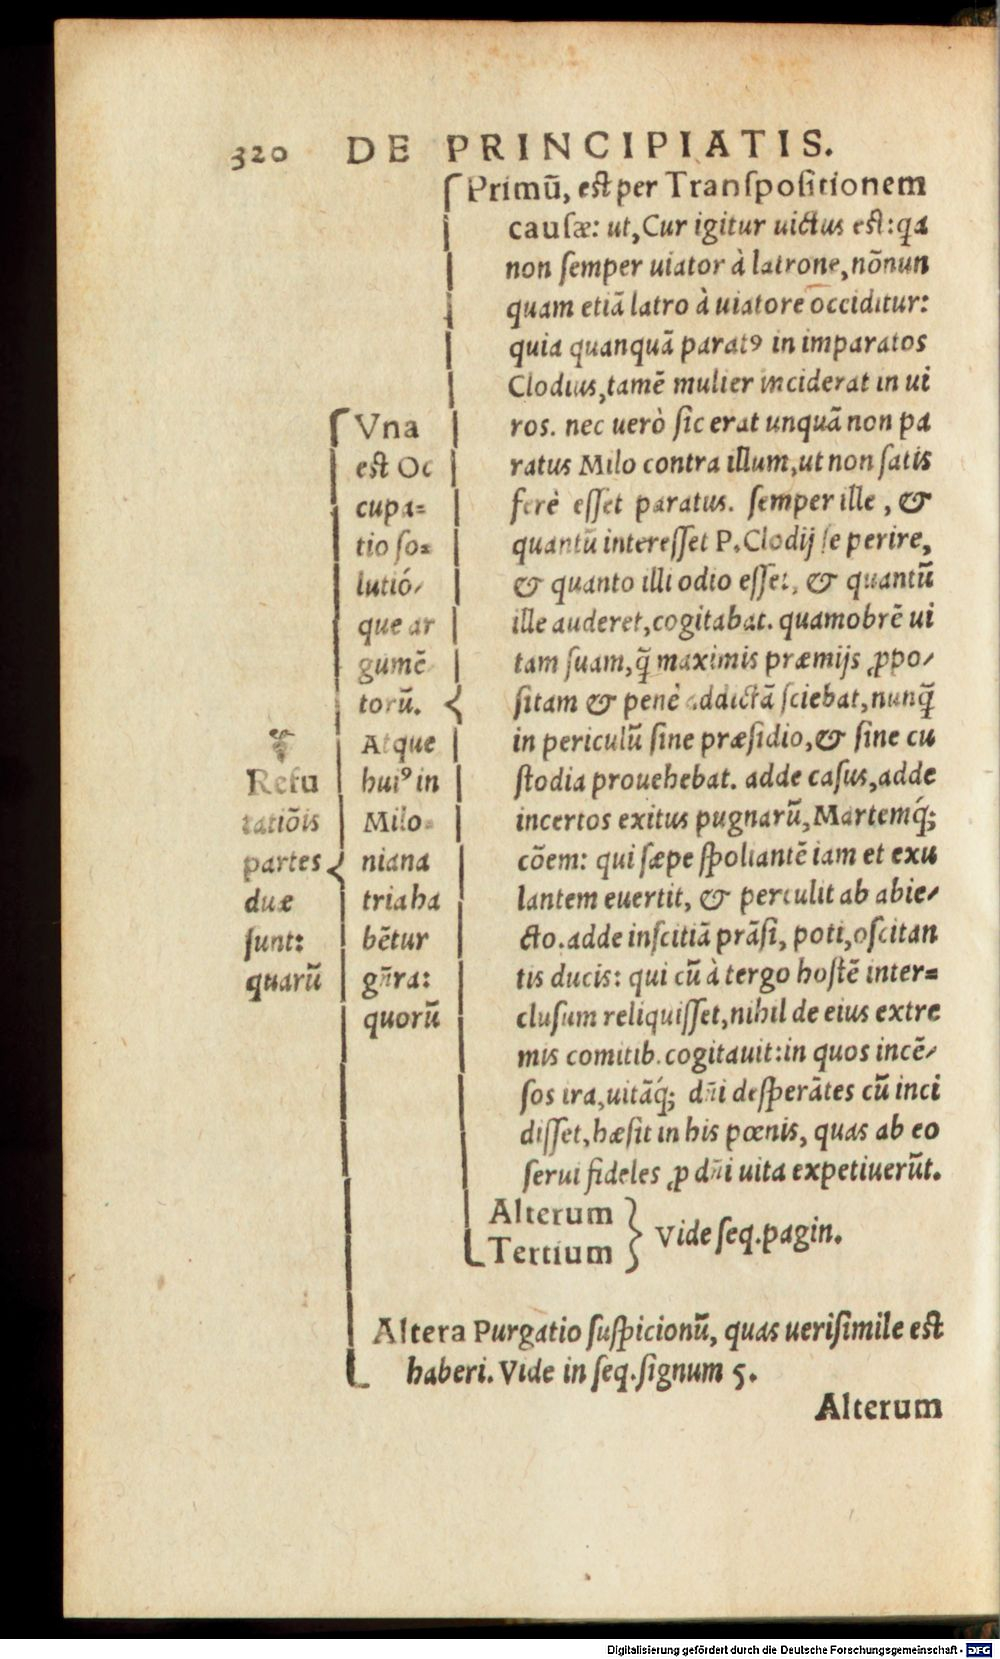 320 DE PRINCIPIATIS.
❦
Refu
tatiõis
partes
duæ
sunt:
quarũ
Vna
est Oc
cupa=
tio so=
lutió/
que ar
gumẽ
torũ.
Atque
huiꝰ in
Milo=
niana
tria ha
bẽtur
gñra:
quorũ
Primũ, est per Transpositionem
causæ: ut, Cur igitur uictus est: qa
non semper uiator à latrone, nõnun
quam etiã latro à uiatore occiditur:
quia quanquã paratꝰ in imparatos
Clodius, tamẽ mulier inciderat in ui
ros. nec uerò sic erat unquã non pa
ratus Milo contra illum, ut non satis
ferè esset paratus. semper ille, &
quantũ interesset P. Clodij se perire,
& quanto illi odio esset, & quantũ
ille auderet, cogitabat. quamobrẽ ui
tam suam, q̃ maximis præmijs ꝓpo/
sitam & penè addictã sciebat, nunq̃
in periculũ sine præsidio, & sine cu
stodia prouehebat. adde casus, adde
incertos exitus pugnarũ, Martemq́;
cõem: qui sæpe spoliantẽ iam et exu
lantem euertit, & perculit ab abie/
cto. adde inscitiã prãsi, poti, oscitan
tis ducis: qui cũ à tergo hostẽ inter=
clusum reliquisset, nihil de eius extre
mis comitib. cogitauit: in quos incẽ/
sos ira, uitãq́; dñi desperãtes cũ inci
disset, hæsit in his pœnis, quas ab eo
serui fideles ꝓ dñi uita expetiuerũt.
Alterum
Tertium
Vide seq. pagin.
Altera Purgatio suspicionũ, quas uerisimile est
haberi. Vide in seq. signum 5.
Alterum
Digitalisierung gefördert durch die Deutsche Forschungsgemeinschaft - DFG